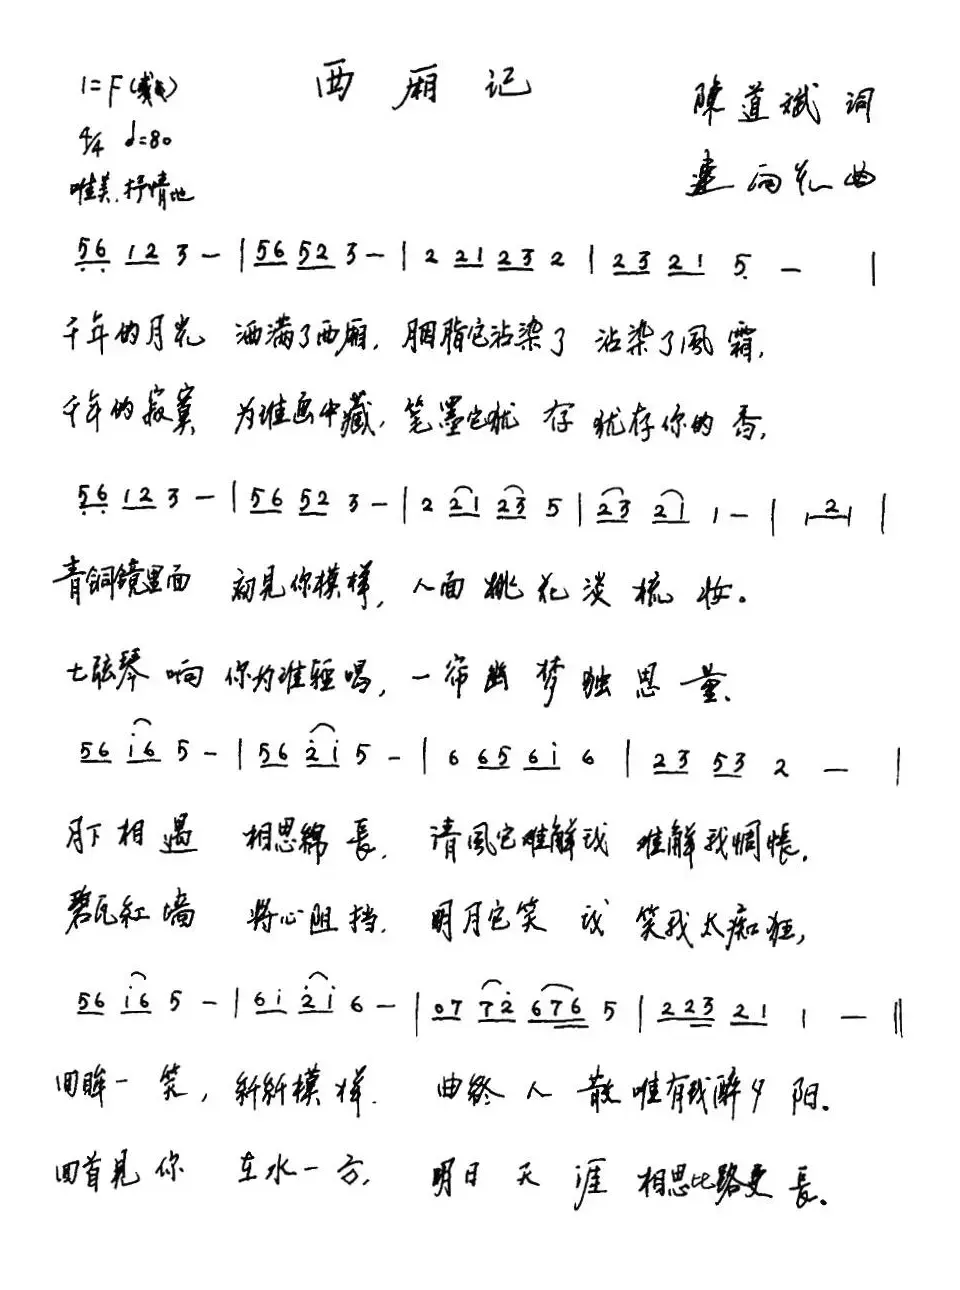 西厢记
1=F
陳道斌 词
4/4 𝅗𝅥=80
唯美.抒情地
向 曲
56 12 3 - | 56 52 3 - | 2 21 23 2 | 23 21 5 - |
千年的月光 洒满了西厢, 胭脂它沾染了 沾染了風霜,
千年的寂寞 为谁画中藏, 笔墨它犹存 犹存你的香,
56 12 3 - | 56 52 3 - | 2 21 23 5 | 23 21 1 - | 2 |
青銅鏡里面 初見你模样, 人面桃花淡梳妆。
七弦琴响 你为谁轻唱, 一帘幽梦独思量.
56 i6 5 - | 56 2̇i 5 - | 6 65 6i 6 | 23 53 2 - |
月下相遇 相思綿長. 清風它难解我 难解我惆怅.
碧瓦紅墙 将心阻挡. 明月它笑我 笑我太痴狂,
56 i6 5 - | 6i 2̇i 6 - | 07 72̇ 676 5 | 223 21 1 - ‖
回眸一笑, 新新模样. 曲终人散 唯有我醉夕阳.
回首見你 在水一方, 明日天涯 相思比路更長.